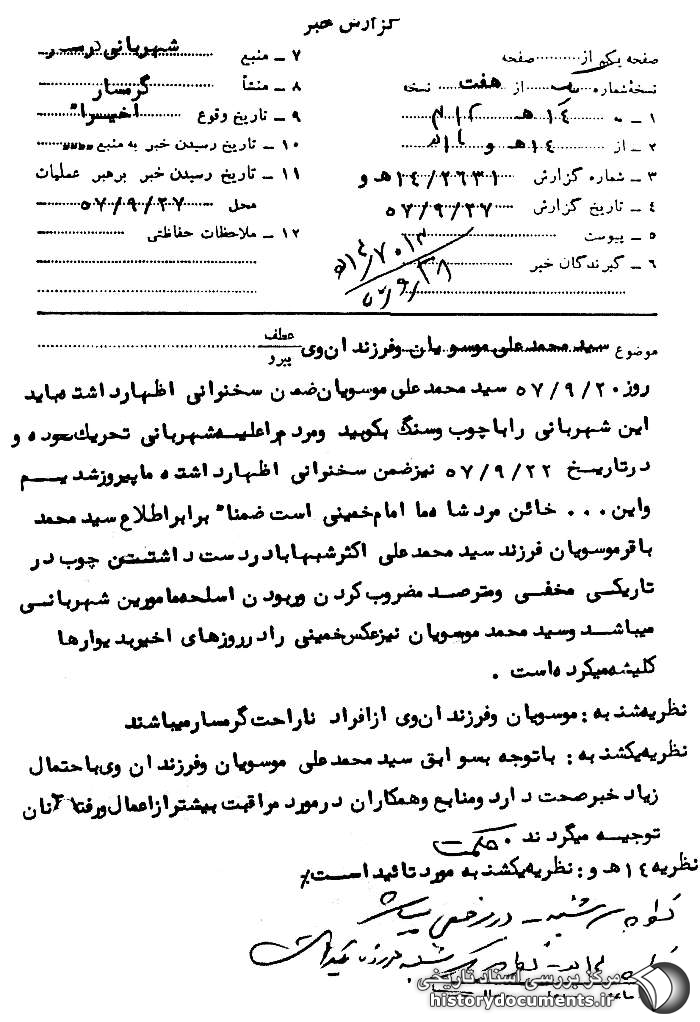 گزارش خبر
صفحه یکم از ........ صفحه
نسخهٔ شماره یک از هفت نسخه
۱ ـ به ۱۴هـ ۳۱۲
۲ ـ از ۱۴هـ و
۳ ـ شماره گزارش ۱۴/۲۶۳۱هـ و
۴ ـ تاریخ گزارش ۵۷/۹/۲۷
۵ ـ پیوست
۶ ـ گیرندگان خبر
۷ ـ منبع شهربانی درسر
۸ ـ منشأ گرمسار
۹ ـ تاریخ وقوع اخیراً
۱۰ ـ تاریخ رسیدن خبر به منبع
۱۱ ـ تاریخ رسیدن خبر برهبر عملیات
محل ۵۷/۹/۲۷
۱۲ ـ ملاحظات حفاظتی
موضوع سید محمدعلی موسویان وفرزندان وی عطف پیرو
روز ۵۷/۹/۲۰ سید محمدعلی موسویان ضمن سخنرانی اظهارداشته باید
این شهربانی راباچوب وسنگ بکوبید ومردم راعلیه شهربانی تحریک نموده و
درتاریخ ۵۷/۹/۲۲ نیزضمن سخنرانی اظهارداشته ماپیروزشدیم
واین ... خائن مرد شاه ما امام خمینی است ضمناً برابراطلاع سید محمد
باقرموسویان فرزند سید محمدعلی اکثرشبهابادردست داشتن چوب در
تاریکی مخفی ومترصد مضروب کردن وربودن اسلحه مامورین شهربانی
میباشد وسید محمد موسویان نیزعکس خمینی رادرروزهای اخیربدیوارها
کلیشه میکرده است .
نظریه شنبه : موسویان وفرزندان وی ازافراد ناراحت گرمسارمیباشند
نظریه یکشنبه : باتوجه بسوابق سید محمدعلی موسویان وفرزندان وی باحتمال
زیاد خبرصحت دارد ومنابع وهمکاران درمورد مراقبت بیشترازاعمال ورفتار آنان
توجیه میگردند . حکمت
نظریه ۱۴هـ و : نظریه یکشنبه مورد تائید است٪
مرکز بررسی اسناد تاریخی
historydocuments.ir